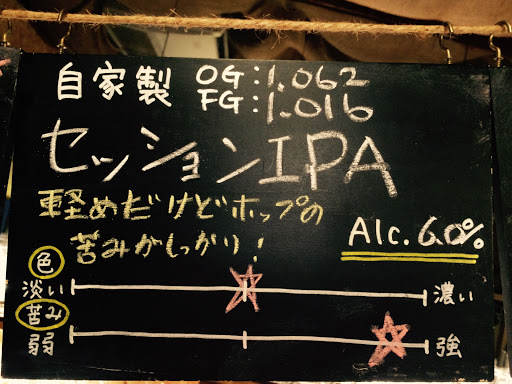 自家製 OG:1.062
FG:1.016
セッションIPA
軽めだけどホップの
苦みがしっかり!
Alc. 6.0%
色
淡い 濃い
苦み
弱 強